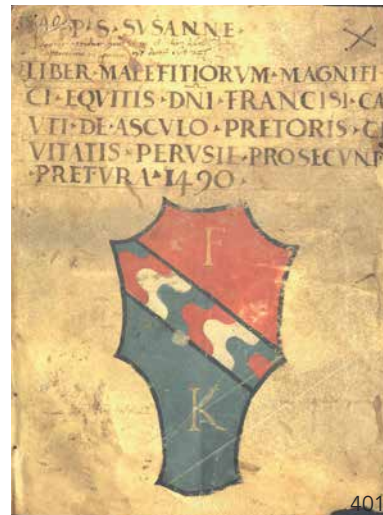 P · S · SVSANNE ·
LIBER · MALEFITIORVM · MAGNIFI
CI · EQVITIS · DNI · FRANCISI · CA
VTI · DE · ASCVLO · PRETORIS · CI
VITATIS · PERVSIE · PRO SECVND
· PRETVRA · 1490 ·
F
K
401